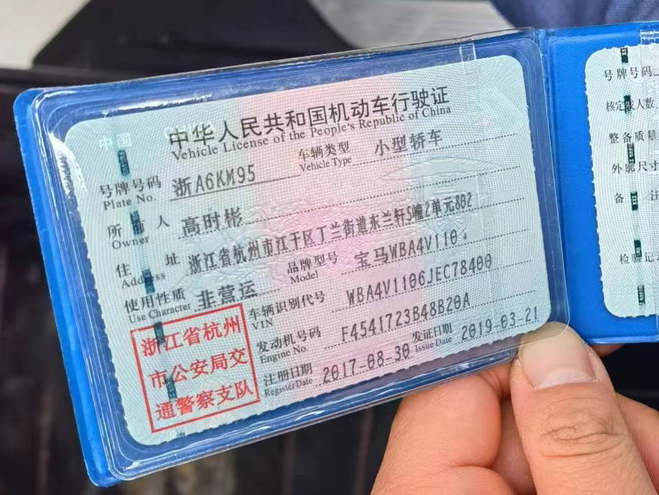 中华人民共和国机动车行驶证
Vehicle License of the People's Republic of China
号牌号码 浙A6KM95 车辆类型 小型轿车
Plate No. Vehicle Type
所有人 高时彬
Owner
住址 浙江省杭州市江干区丁兰街道东兰轩5幢2单元802
Address
使用性质 非营运 品牌型号 宝马WBA4V110
Use Character Model
车辆识别代号 WBA4V1106JEC78400
VIN
发动机号码 F4541723B48B20A
Engine No.
注册日期 2017-08-30 发证日期 2019-03-21
Register Date Issue Date
浙江省杭州
市公安局交
通警察支队
号牌号码
核定载人数
整备质量
外廓尺寸
备注
检验记